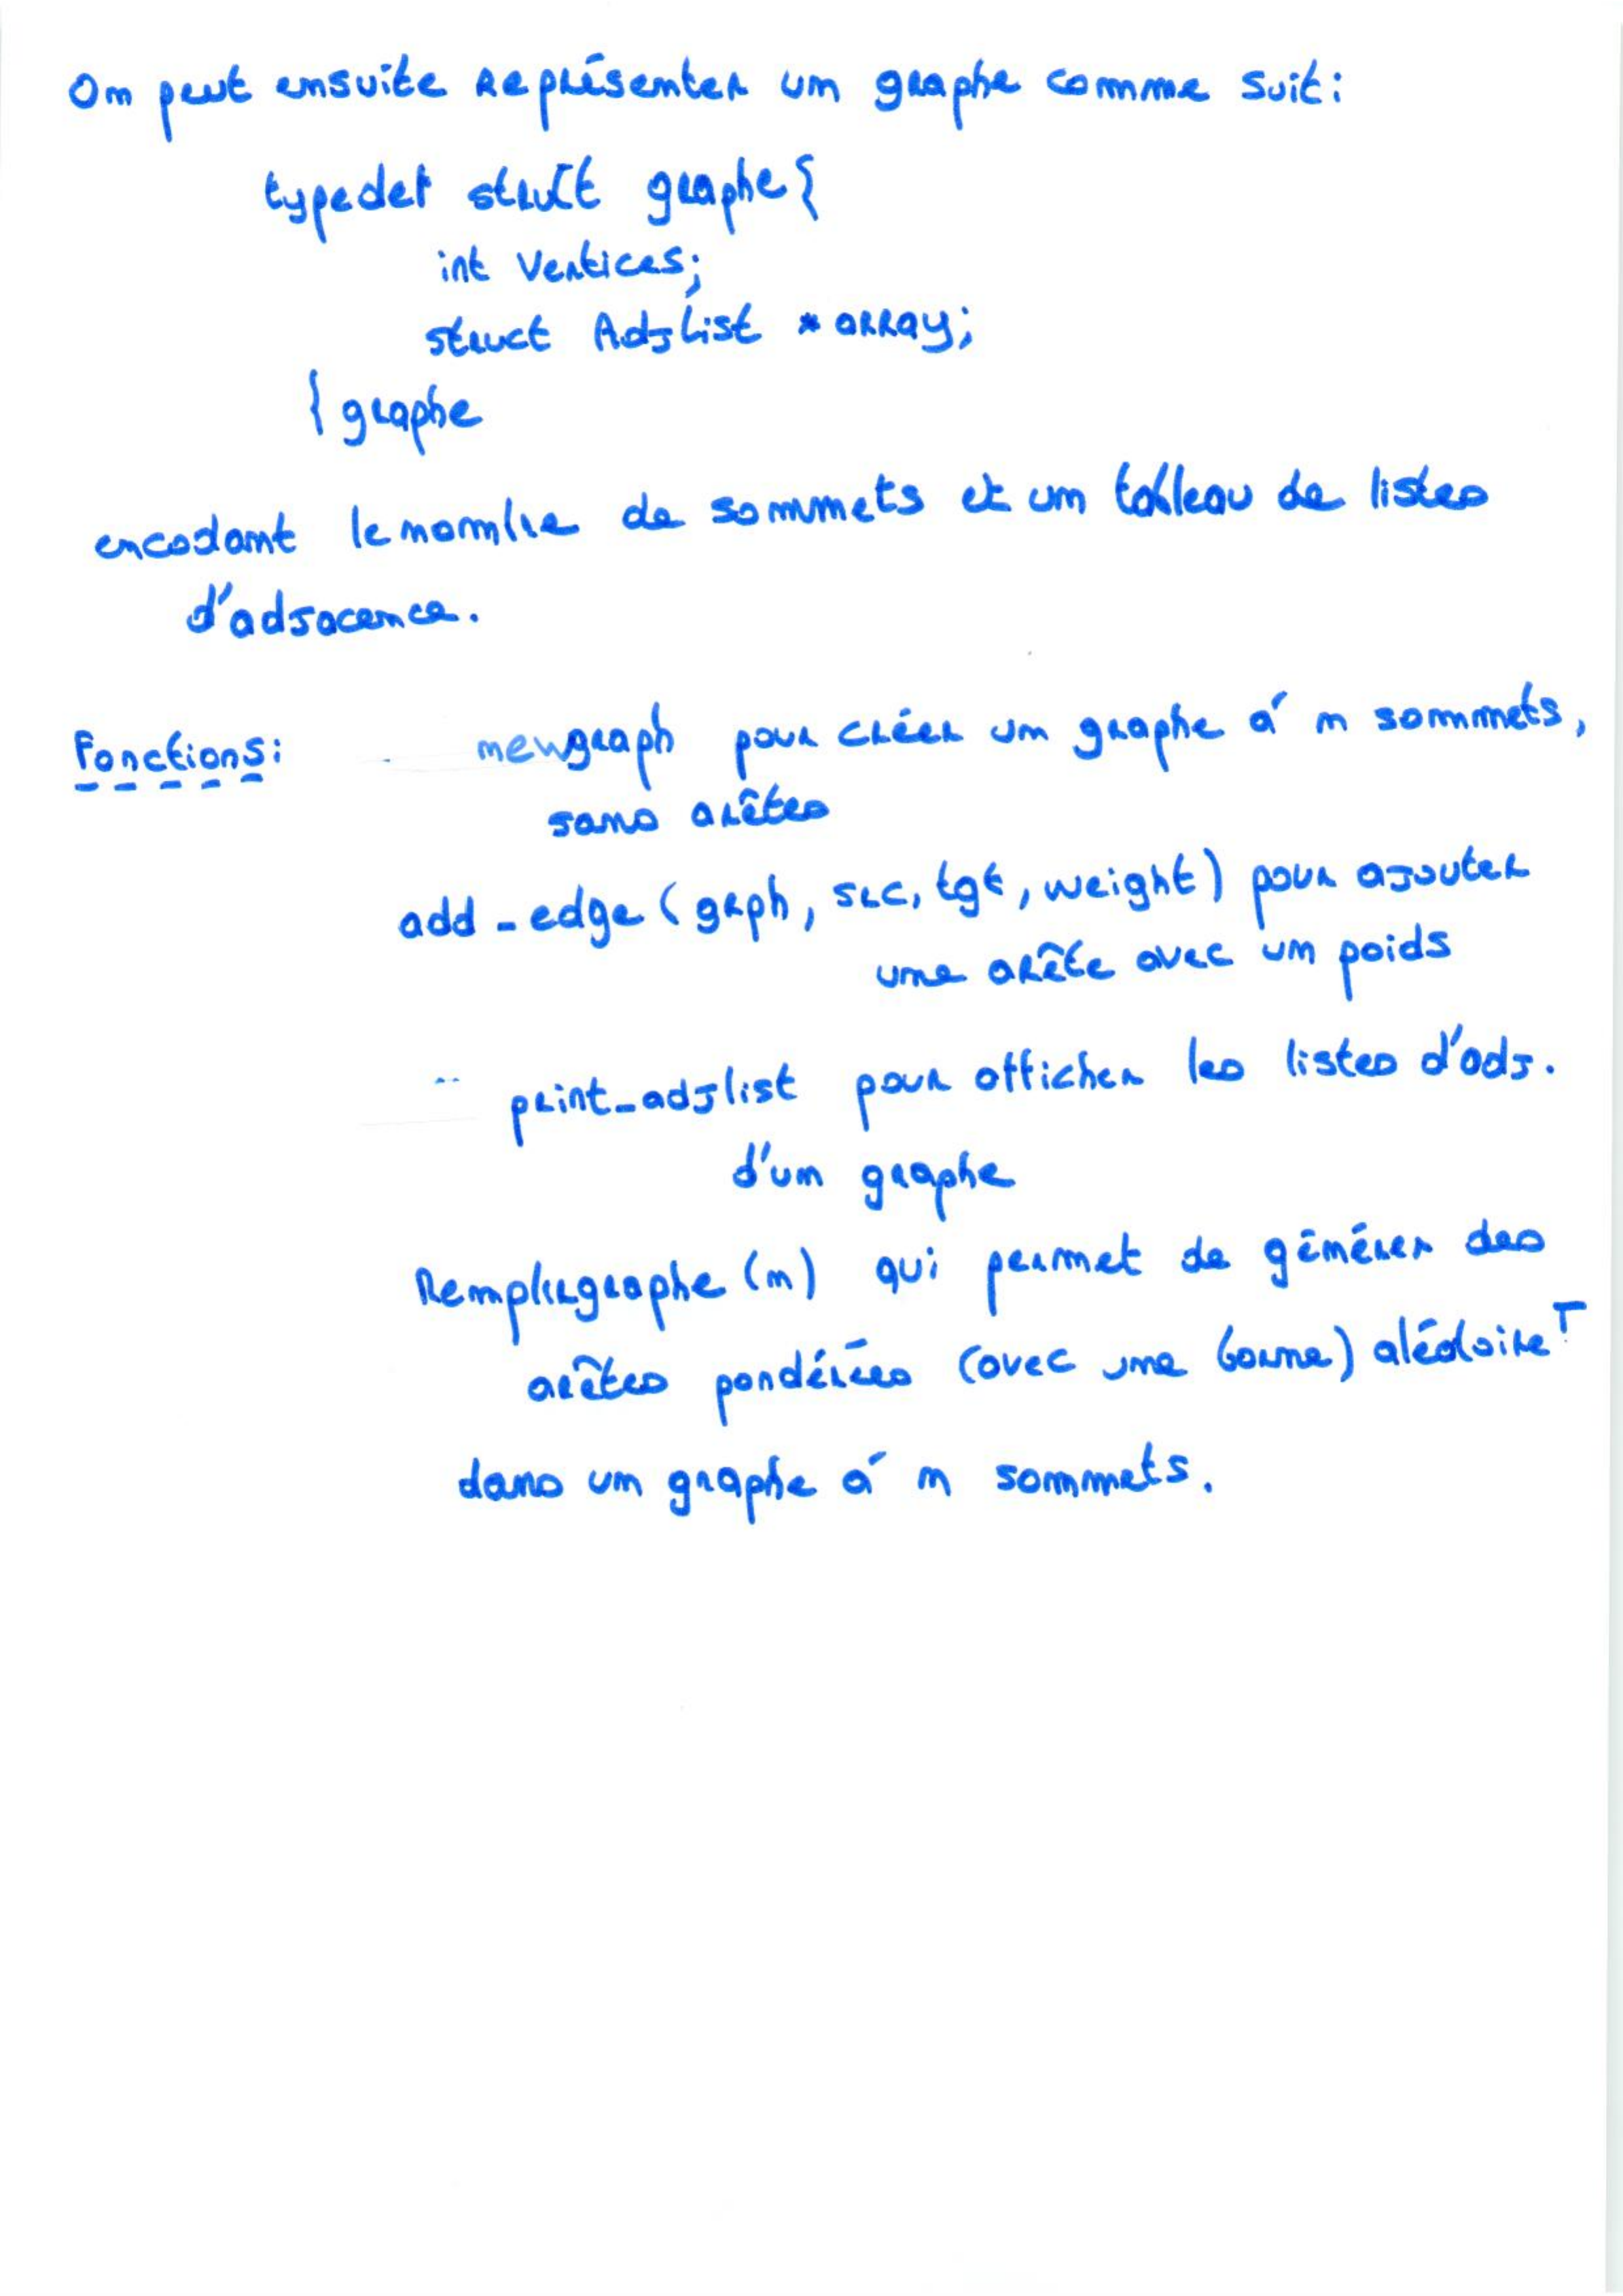 On peut ensuite représenter un graphe comme suit:
typedef struct graphe{
int vertices;
struct AdjList *array;
} graphe
encodant le nombre de sommets et un tableau de listes
d'adjacence.
Fonctions: newgraph pour créer un graphe à n sommets,
sans arêtes
add_edge (grph, src, tgt, weight) pour ajouter
une arête avec un poids
print_adjlist pour afficher les listes d'adj.
d'un graphe
Remplirgraphe (n) qui permet de générer des
arêtes pondérées (avec une borne) aléatoire^T
dans un graphe à n sommets.